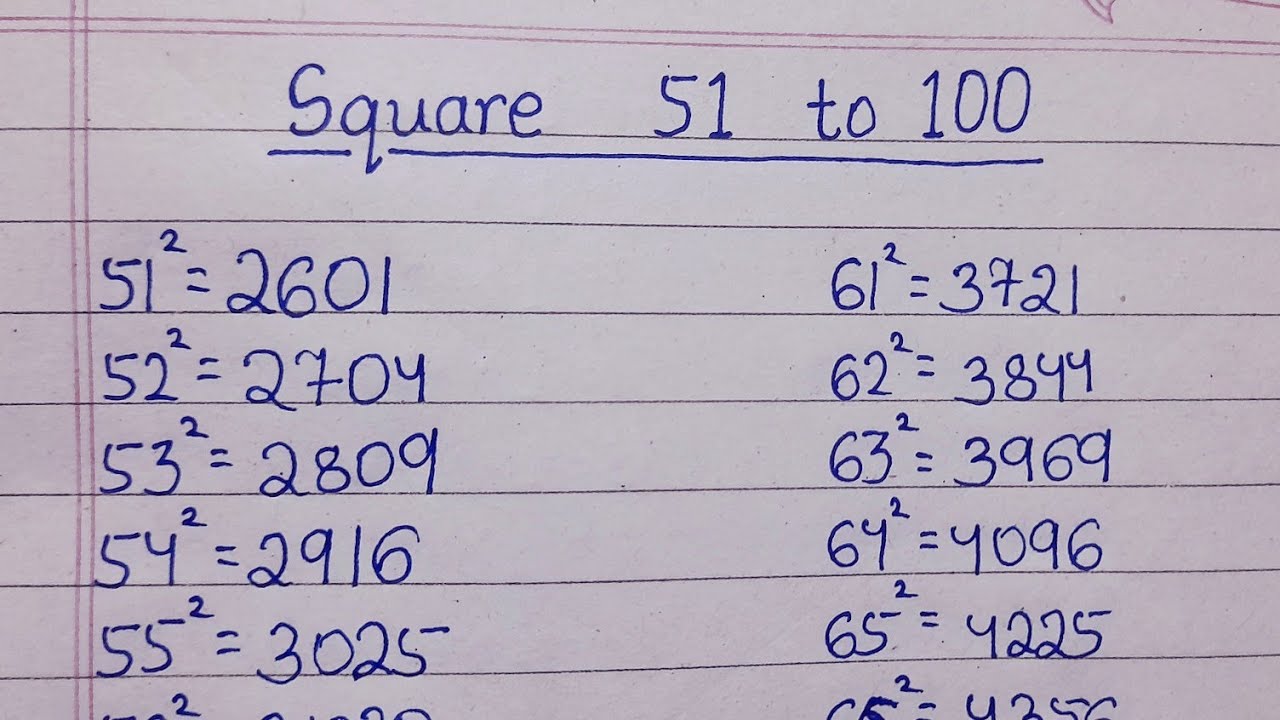 Square 51 to 100
51² = 2601
52² = 2704
53² = 2809
54² = 2916
55² = 3025
61² = 3721
62² = 3844
63² = 3969
64² = 4096
65² = 4225